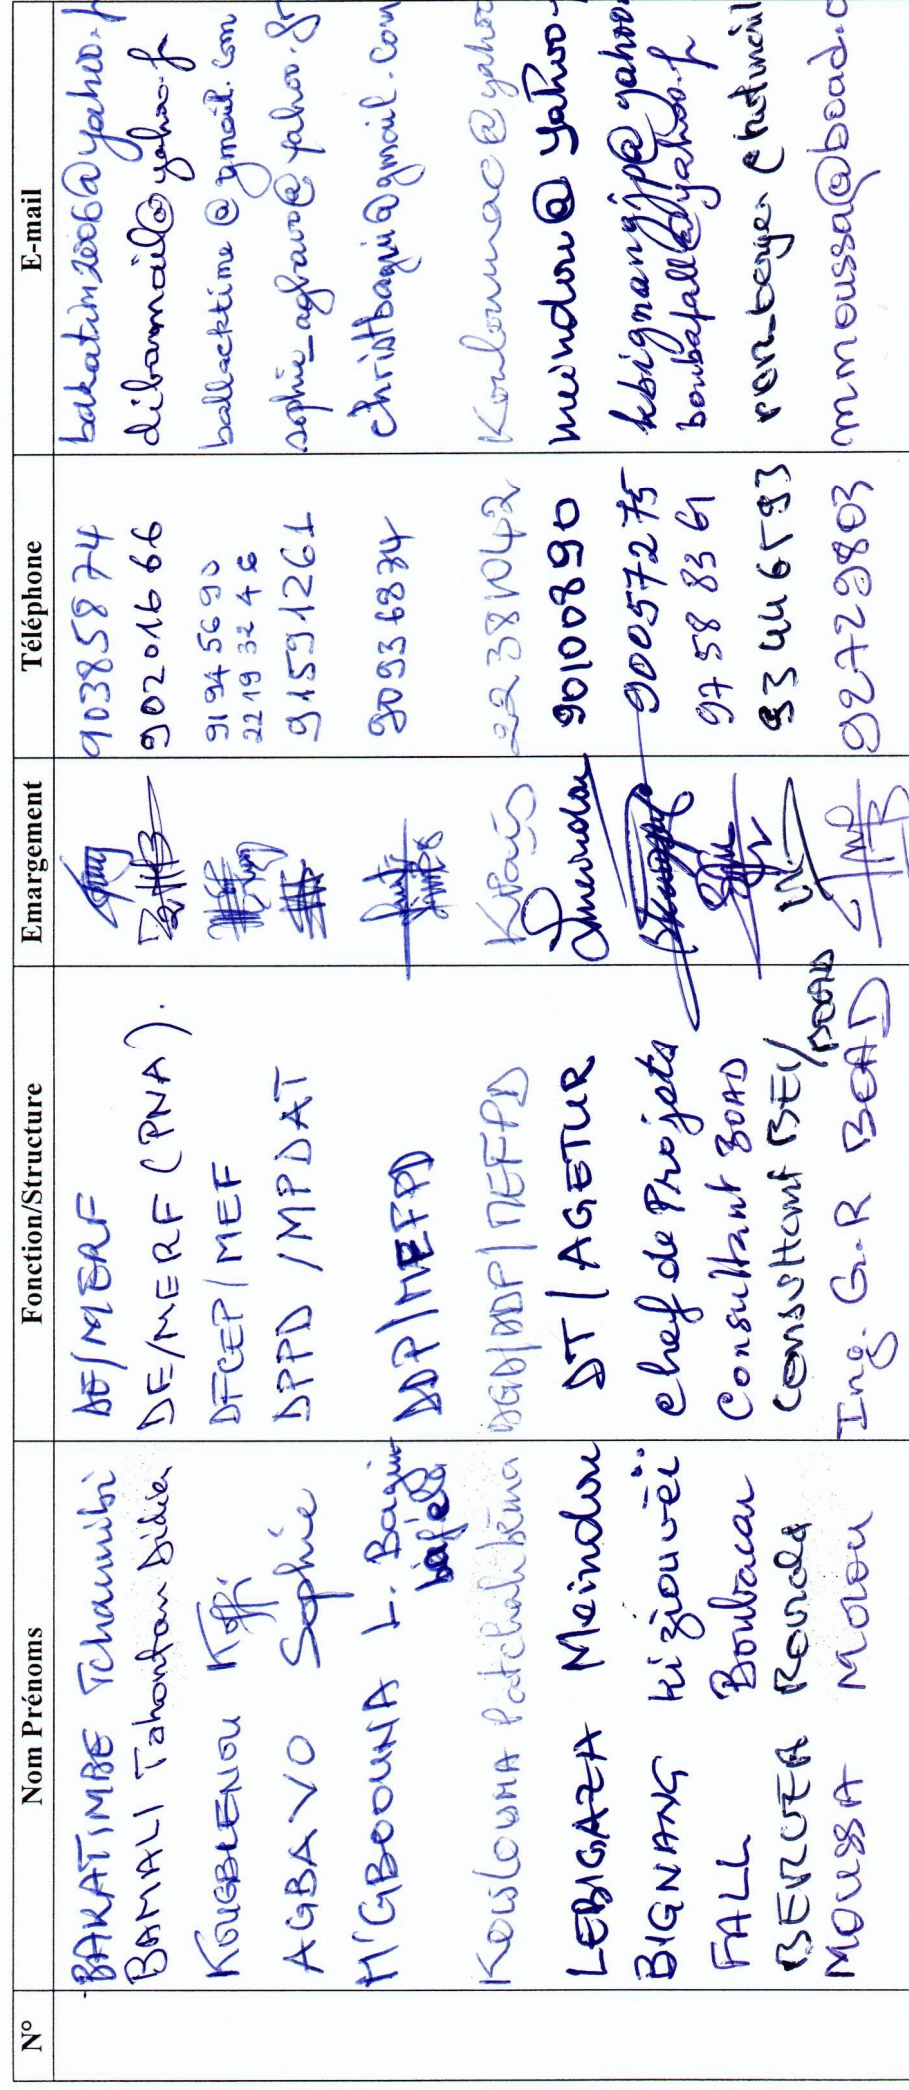 N° Nom Prénoms Fonction/Structure Emargement Téléphone E-mail
BAKATIMBE Tchannibi DE/MERF 90385874 bakatim2006@yahoo.f
BAMALI Tahontan Didier DE/MERF (PNA). 90201666 dibamail@yahoo.fr
KOUGBLENOU Koffi DFCEP/MEF 91 94 56 90 ballacktime@gmail.com
22 19 32 46
AGBAVO Sophie DPPD/MPDAT 91591261 sophie_agbavo@yahoo.fr
M'GBOOUNA L. Bagui DDP/MEFPD 90936834 christbagui@gmail.com
Koulouma Patchalibéma DGD/DDP/MEFPD 22381042 Kouloumac@yahoo
LEBIGAZA Meindou DT/AGETUR Lmeindou 90100890 meindou@yahoo.
BIGNANG Kiziouvèï chef de Projets 90057275 kbignangjp@yahoo.
FALL Boubacar Consultant BOAD 97 58 83 61 boubafall@yahoo.fr
BERGER Ronda Consultant BEI/BOAD 93446593
MOUSSA Morou Ing. G.R BOAD 92729803 mmoussa@boad.o